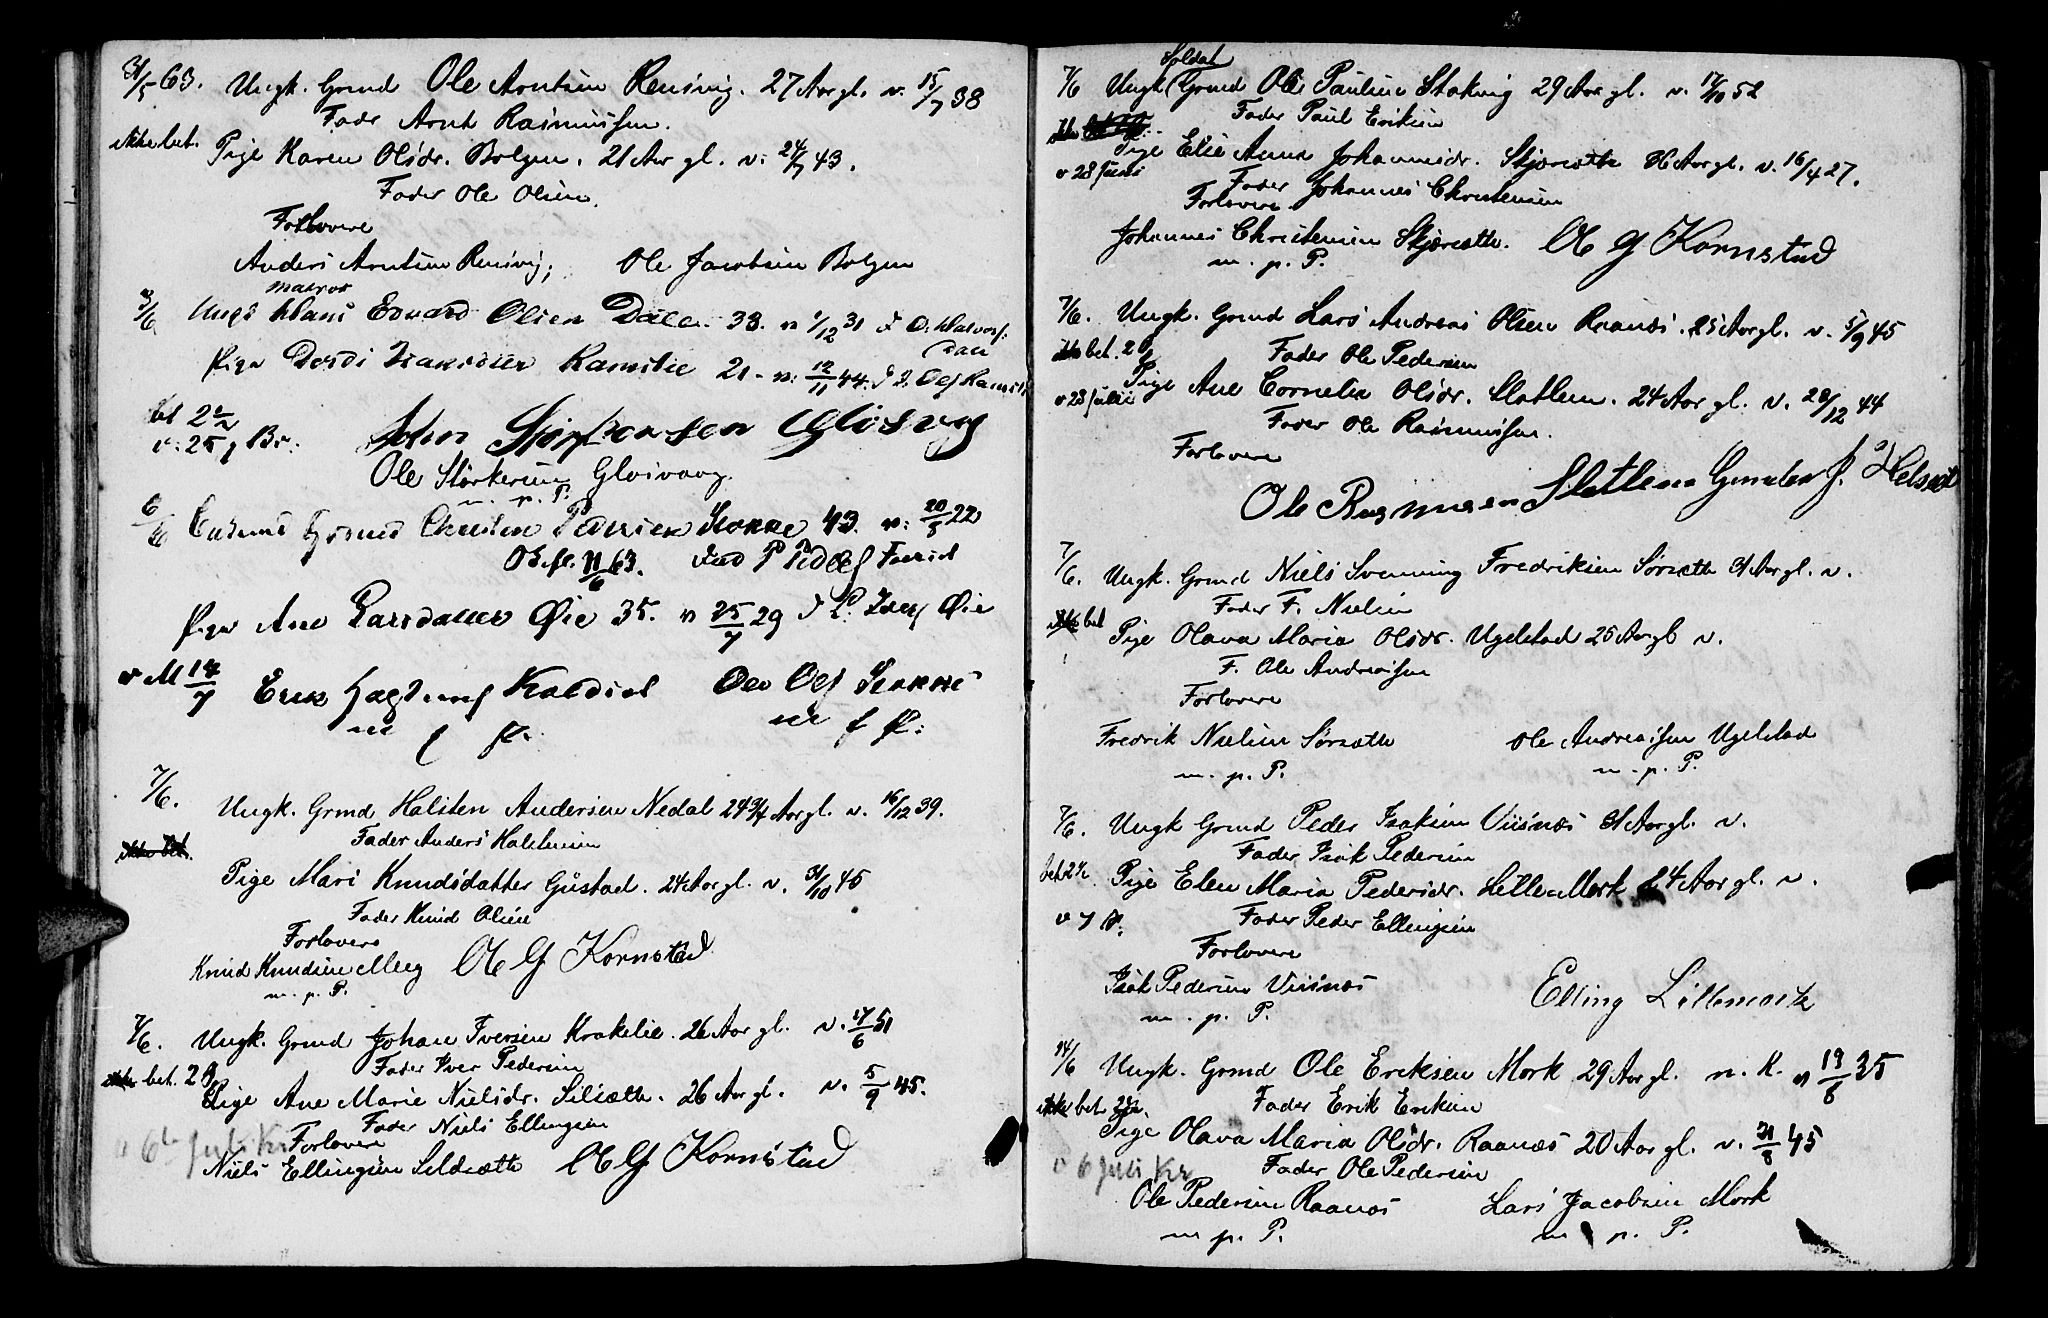 31/5 63. Ungk. Grmd Ole Arntsen Rensvig. 27 Aar gl. v. 15/7 38
Fader Arnt Rasmussen.
ikke bet. Pige Karen Olsdr. Bolgen. 21 Aar gl. v. 24/7 43.
Fader Ole Olsen.
Forlovere
Anders Arntsen Rensvig, Ole Jacobsen Bolgen
Matros
3/6 Ungk Hans Edvard Olsen Dale. 33. v 1/12 31 F O. Halvors.
Dale
Pige Dordi Isaksdtter Ramslie 21 - v: 12/11 44. F I. Oles Ramsli
bet 2 1/2
v: 25 Br. John Størkersen Glosvog
Ole Størkersen Glosvaag.
m. p. P.
6/6 Enkem. Grmd Christen Pedersen 43. v: 20/8 22
63. Fad P Peders
Pige Ane Larsdatter Øie 35. v 25/7 29 F L. Øie
v M 14/7 Erik Ole Ols
m f P. m f P:
7/6. Ungk. Grmd Halsten Andersen Nedal 24 3/4 Aar gl. v. 16/12 39.
Fader Anders Halstensen
ikke bet.
Pige Mari Knudsdatter Gustad. 24 Aar gl. v. 31/10 45
Fader Knud Olsen
Forlovere
Knud Knudsen Meeg O G Kornstad
m. p. P.
7/6. Ungk. Grmd Johan Iversen Krakelie. 26 Aar gl. v. 17/6 51
Fader Iver Pedersen
ikke bet. 2
Pige Ane Marie Nielsdr. Silsæth. 26 Aar gl. v. 5/9 45.
Fader Niels Ellingsen
v 6te Juli Kr Forlovere
Niels Ellingsen Sildsæth O G Kornstad
Soldat
7/6 Ungk Grmd Ole Paulsen Stokvig 29 Aar gl. v. 17/10 52
Fader Paul Eriksen
Pige Elie Anna Johannesdr. Skjærsæth 36 Aar gl. v. 16/4 27.
v 28 Juni Fader Johannes Christensen
Forlovere
Johannes Christensen Skjærsæth. O G Kornstad
m. p. P.
7/6. Ungk. Grmd Lars Andreas Olsen Raanæs. 25 Aar gl. v. 5/9 45
ikke bet. 2 Fader Ole Pedersen
Pige Ane Cornelia Olsdr. Slatlem. 24 Aar gl. v. 28/12 44
v 23 Julii Fader Ole Rasmussen.
Forlovere
Ole Rasmusen Slatlem
7/6. Ungk. Grmd Niels Svenning Fredriksen Sørsæth 31 Aar gl. v.
Fader F. Nielsen
ikke bet Pige Olava Maria Olsdr. Ugelstad 25 Aar gl v.
F. Ole Andreassen
Forlovere
Fredrik Nielsen Sørsæth Ole Andreassen Ugelstad
m. p. P. m. p. P.
7/6. Ungk Grmd Peder Isaksen Viisnæs 31 Aar gl. v.
Fader Isak Pedersen
bet 2 Pige Elen Maria Pedersdr. LilleMork 24 Aar gl. v.
v 7 Fader Peder Ellingsen
Forlovere
Isak Pedersen Viisnæs Elling Lillemork
m. p. P.
14/6 Ungk. Grmd Ole Eriksen Mork 29 Aar gl. n. K. v 19/6 35
Fader Erik Eriksen
ikke bet
Pige Olava Maria Olsdr. Raanæs 20 Aar gl. v. 31/8 45
v 6 Juli Kr Fader Ole Pedersen
Ole Pedersen Raanæs Lars Jacobsen Mork
m p. P. m p. P.